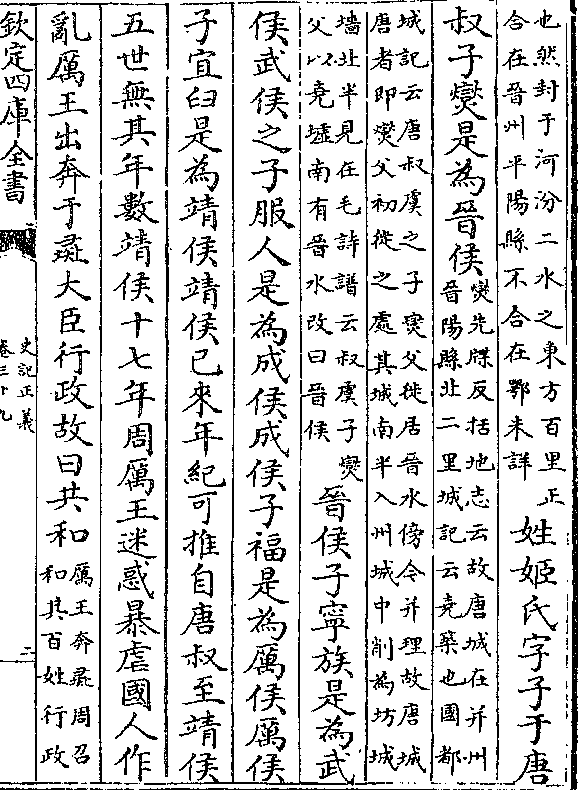 也然封于河汾二水之東方百里正
合在晉州平陽縣不合在鄂未詳
姓姬氏字子于唐
叔子燮是為晉侯
燮先牒反括地志云故唐城在并州
晉陽縣北二里城記云堯築也國都
城記云唐叔虞之子燮父徙居晉水傍今并理故唐城
唐者即燮父初徙之處其城南半入州城中削為坊城
墻北半見在毛詩譜云叔虞子燮
父以堯墟南有晉水改曰晉侯
晉侯子寧族是為武
侯武侯之子服人是為成侯成侯子福是為厲侯厲侯
子宜臼是為靖侯靖侯已來年紀可推自唐叔至靖侯
五世無其年數靖侯十七年周厲王迷惑暴虐國人作
亂厲王出奔于彘大臣行政故曰共和
厲王奔彘周召
和其百姓行政
欽定四庫全書
史記正義
卷三十九
二